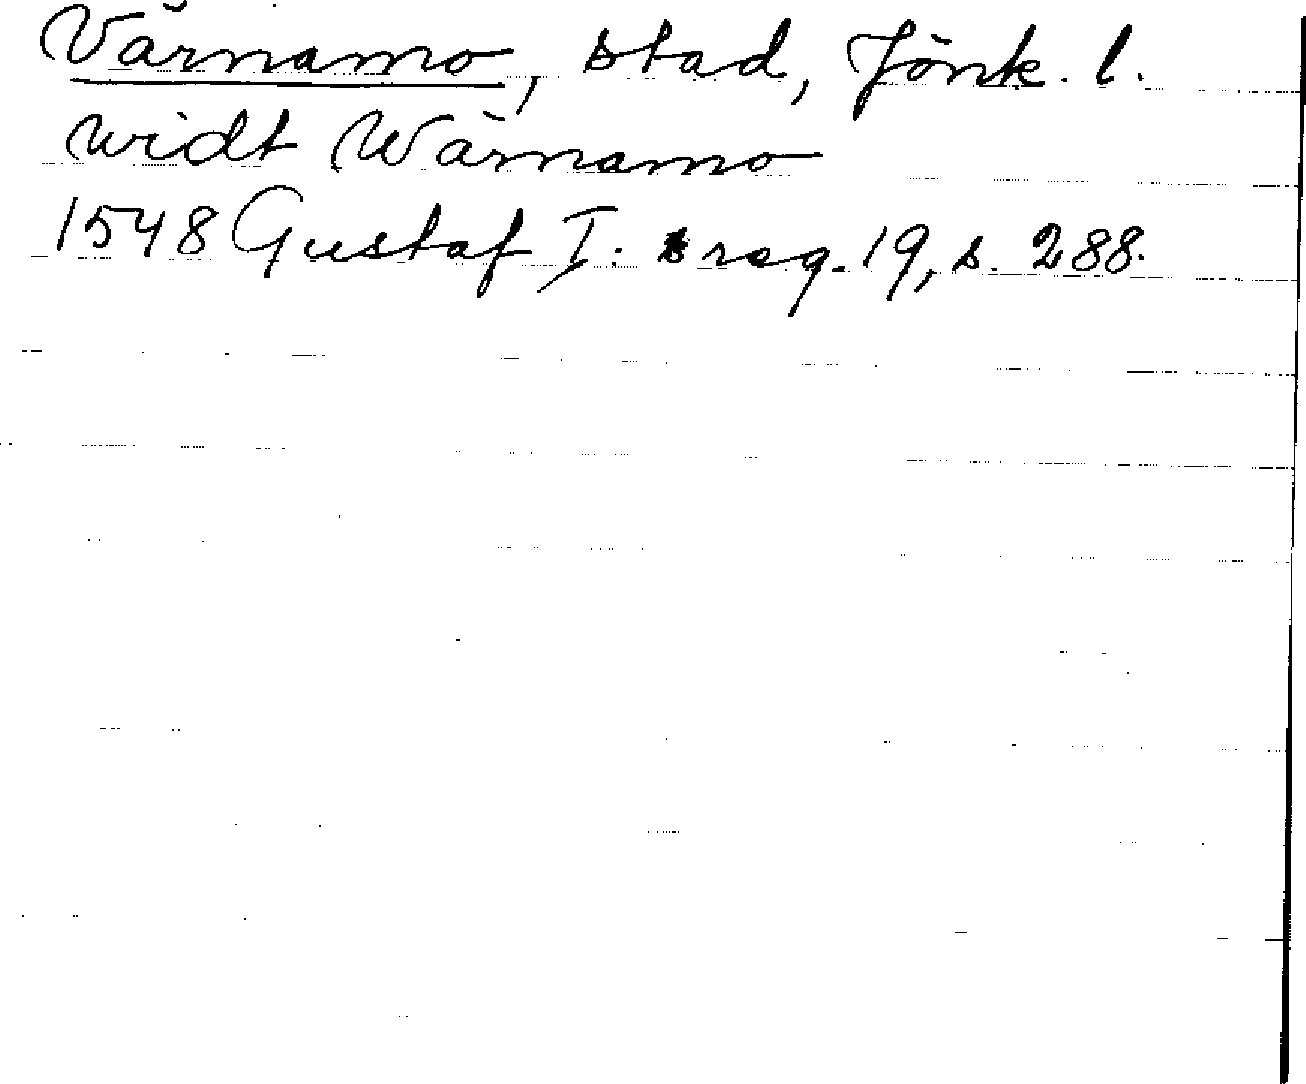 Värnamo, stad, Jönk. l.
widt Wärnamo
1548 Gustaf I. s reg. 19, s. 288.